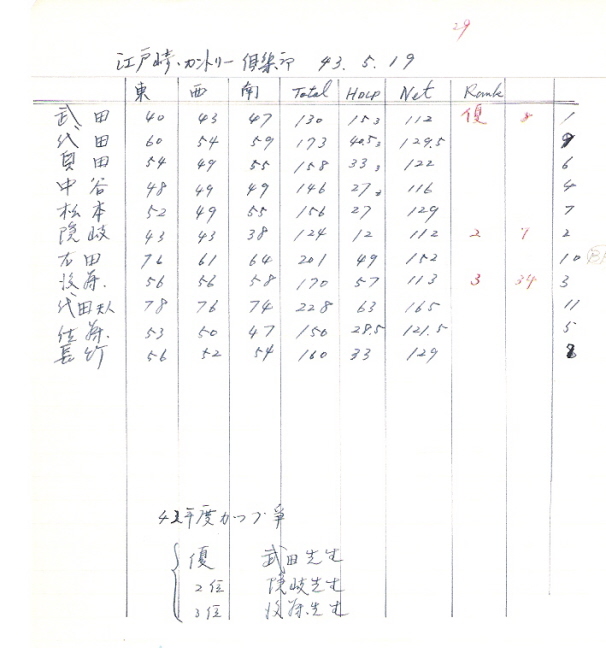 29
江戸崎カントリー倶楽部 43. 5. 19
東 西 南 Total HDCP Net Rank
武田 40 43 47 130 15 112 優 8 1
代田 60 54 59 173 129.5 9
真田 54 49 55 158 33 122 6
中谷 48 49 49 146 27 116 4
松本 52 49 55 156 27 129 7
隠岐 43 43 38 124 12 112 2 7 2
76 61 64 201 49 152 10
後藤 56 56 58 170 57 113 3 34 3
代田夫人 78 76 74 228 63 165 11
佐藤 53 50 47 150 28.5 121.5 5
長竹 56 52 54 160 33 129 8
年度カップ争
優 武田先生
2位 隠岐先生
3位 後藤先生